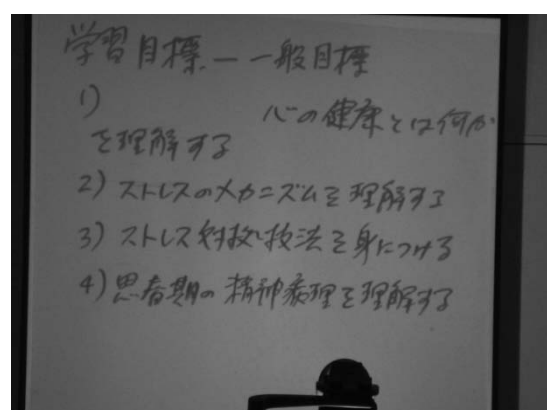 学習目標 ― 一般目標
1) 心の健康とは何か
を理解する
2) ストレスのメカニズムを理解する
3) ストレス対処技法を身につける
4) 思春期の精神病理を理解する